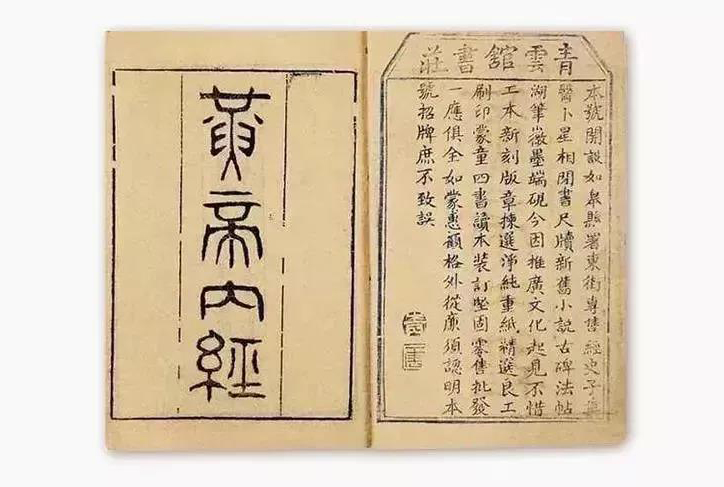 青雲舘書莊
本號開設如皋縣署東街專售經史子集
醫卜星相閑書尺牘新舊小說古碑法帖
湖筆徽墨端硯今因推廣文化起見不惜
工本新刻版章揀選淨純重紙精選良工
刷印蒙童四書讀本裝訂堅固零售批發
一應俱全如蒙惠顧格外從廉須認明本
號招牌庶不致誤
黃帝內經